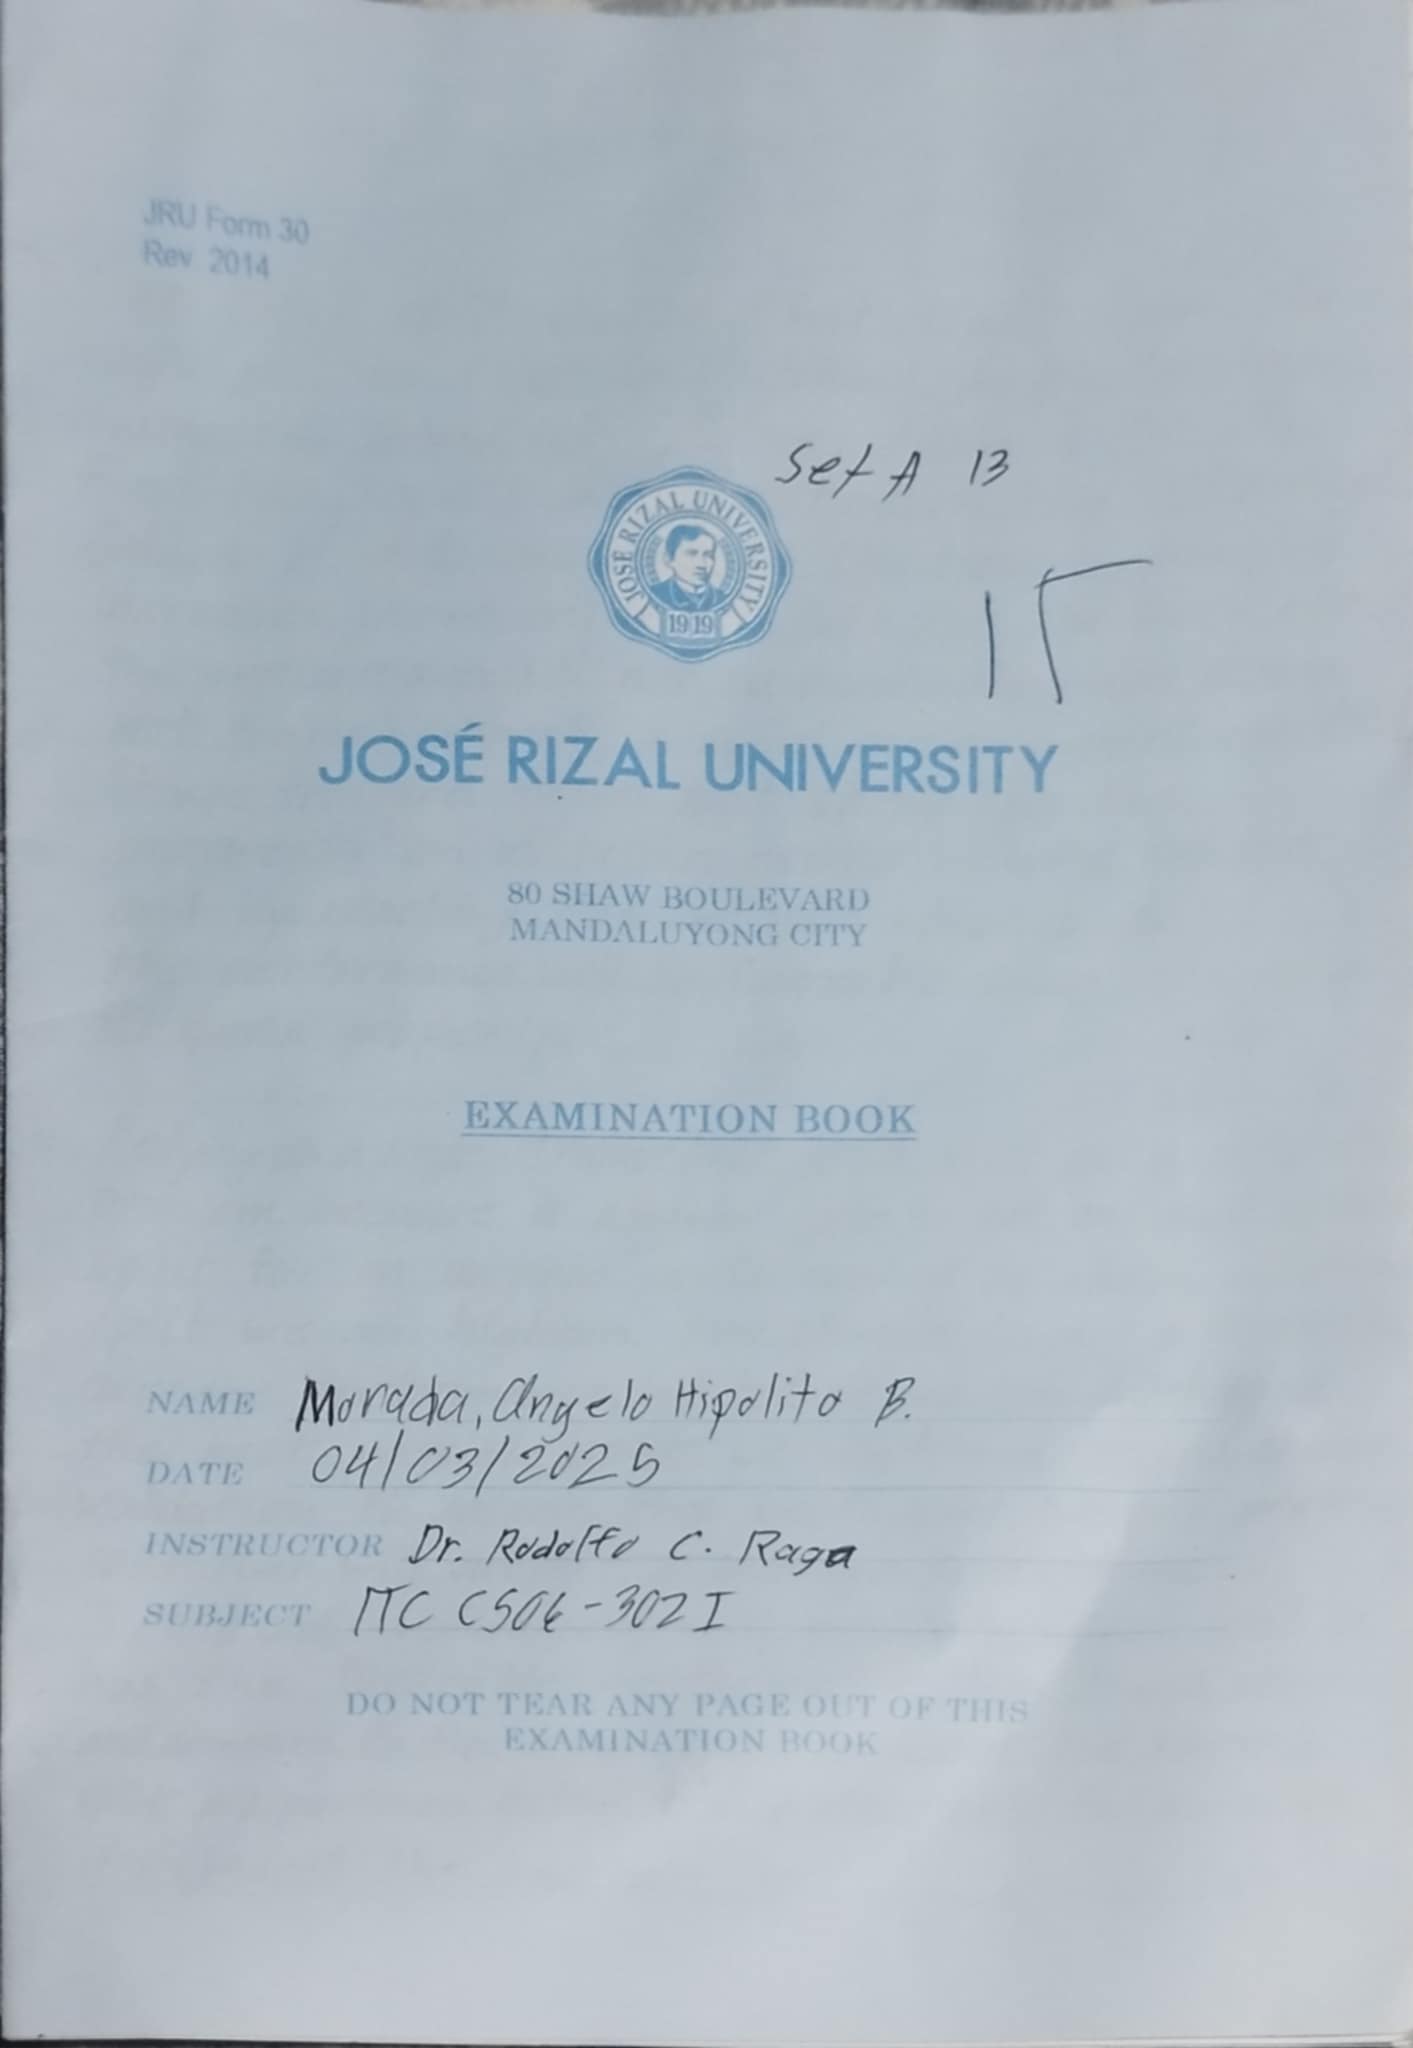 JRU Form 30
Rev 2014
Set A 13
JOSÉ RIZAL UNIVERSITY
1919
15
JOSÉ RIZAL UNIVERSITY
80 SHAW BOULEVARD
MANDALUYONG CITY
EXAMINATION BOOK
NAME Morada, Angelo Hipolito B.
DATE 04/03/2025
INSTRUCTOR Dr. Rodolfo C. Raga
SUBJECT ITC CS06-302I
DO NOT TEAR ANY PAGE OUT OF THIS
EXAMINATION BOOK